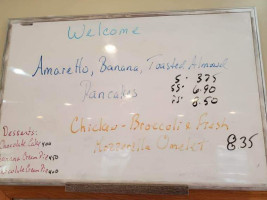 Welcome
Amaretto, Banana, Toasted Almond
Pancakes
S. 375
SS. 6.90
8.50
Chicken - Broccoli & Fresh
Mozzarella Omelet 8.35
Desserts:
Chocolate Cake 400
Cream Pie 450
Chocolate Cream Pie